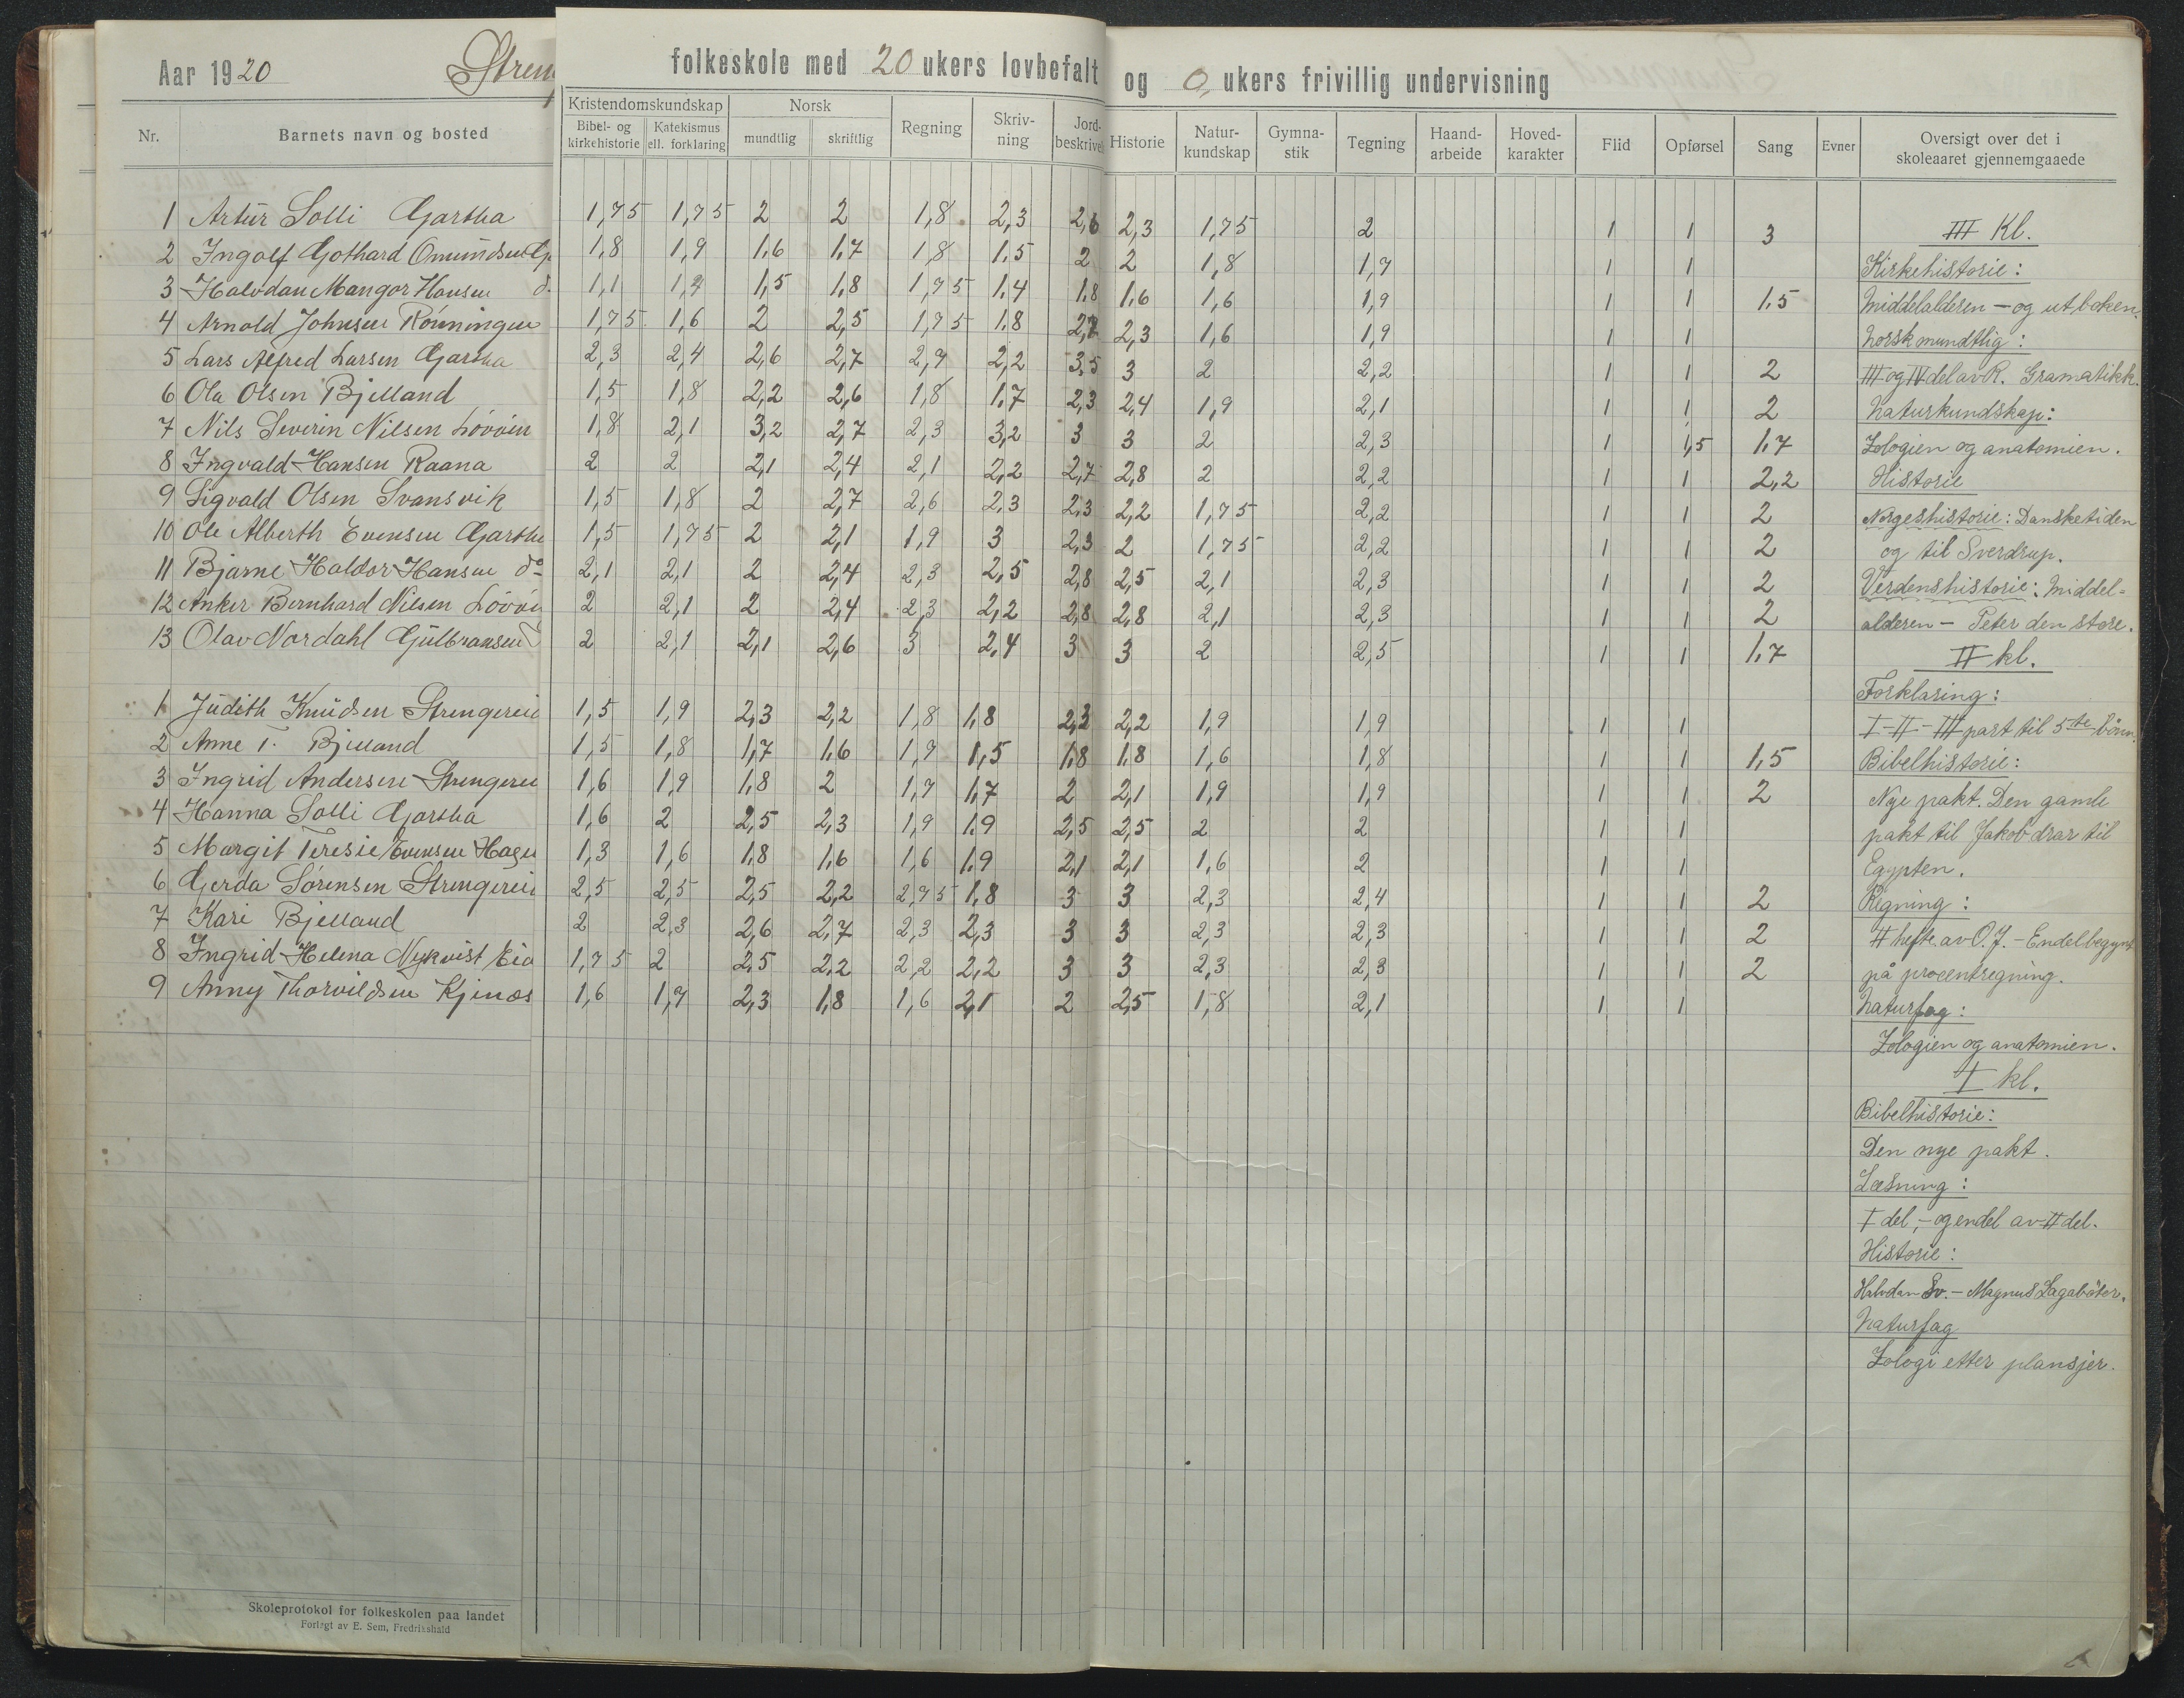 Aar 1920 Streng folkeskole med 20 ukers lovbefalt og 0, ukers frivillig undervisning
Nr. Barnets navn og bosted Kristendomskundskap Bibel- og kirkehistorie Katekismus ell. forklaring Norsk mundtlig skriftlig Regning Skriv-ning Jord-beskrivels Historie Natur-kundskap Gymna-stik Tegning Haand-arbeide Hoved-karakter Flid Opførsel Sang Evner Oversigt over det i skoleaaret gjennemgaaede
1 Artur Solli Gjartha 1,75 1,75 2 2 1,8 2,3 2,6 2,3 1,75 2 1 1 3
2 Ingolf Gothard Omundsen Gj 1,8 1,9 1,6 1,7 1,8 1,5 2 2 1,8 1,7 1 1
3 Halvdan Mangor Hansen d. 1,1 1,2 1,5 1,8 1,75 1,4 1,8 1,6 1,6 1,9 1 1 1,5
4 Arnold Johnsen Rönningen 1,75 1,6 2 2,5 1,75 1,8 2,2 2,3 1,6 1,9 1 1
5 Lars Alfred Larsen Gjartha 2,3 2,4 2,6 2,7 2,9 2,2 3,5 3 2 2,2 1 1 2
6 Ola Olsen Bjelland 1,5 1,8 2,2 2,6 1,8 1,7 2,3 2,4 1,9 2,1 1 1 2
7 Nils Severin Nilsen Lövöen 1,8 2,1 3,2 2,7 2,3 3,2 3 3 2 2,3 1 1,5 1,7
8 Ingvald Hansen Raana 2 2 2,1 2,4 2,1 2,2 2,7 2,8 2 2,2 1 1 2,2
9 Sigvald Olsen Svansvik 1,5 1,8 2 2,7 2,6 2,3 2,3 2,2 1,75 2,2 1 1 2
10 Ole Alberth Evensen Gjartha 1,5 1,75 2 2,1 1,9 3 2,3 2 1,75 2,2 1 1 2
11 Bjarne Haldor Hansen do 2,1 2,1 2 2,4 2,3 2,5 2,8 2,5 2,1 2,3 1 1 2
12 Anker Bernhard Nilsen Lövöen 2 2,1 2 2,4 2,3 2,2 2,8 2,8 2,1 2,3 1 1 2
13 Olav Nordahl Gulbransen 2 2,1 2,1 2,6 3 2,4 3 3 2 2,5 1 1 1,7
1 Judith Knudsen Strengerei 1,5 1,9 2,3 2,2 1,8 1,8 2,2 2,2 1,9 1,9 1 1
2 Anne T. Bjelland 1,5 1,8 1,7 1,6 1,7 1,5 1,8 1,8 1,6 1,8 1 1 1,5
3 Ingrid Andersen Strengerei 1,6 1,9 1,8 2 1,7 1,7 2 2,1 1,9 1,9 1 1 2
4 Hanna Solli Gjartha 1,6 2 2,5 2,3 1,9 1,9 2,5 2,5 2 2 1 1
5 Margit Teresie Evensen Hagen 1,3 1,6 1,8 1,6 1,6 1,9 2,1 2,1 1,6 2 1 1
6 Gerda Sörensen Strengerei 2,5 2,5 2,5 2,2 2,75 1,8 3 3 2,3 2,4 1 1 2
7 Kari Bjelland 2 2,3 2,6 2,7 2,3 2,3 3 3 2,3 2,3 1 1 2
8 Ingrid Helena Nykvist Eid 1,75 2 2,5 2,2 2,2 2,2 3 3 2,3 2,3 1 1 2
9 Anny Thorvildsen Kjinæs 1,6 1,7 2,3 1,8 1,6 2,1 2 2,5 1,8 2,1 1 1
III Kl.
Kirkehistorie:
Middelalderen – og ut boken.
Norsk mundtlig:
III og IV del av R. Gramatikk.
Naturkundskap:
Zologien og anatomien.
Historie
Norgeshistorie: Dansketiden
og til Sverdrup.
Verdenshistorie: Middel-
alderen – Peter den store.
II kl.
Forklaring:
I – II – III part til 5te bönn.
Bibelhistorie:
Nye pakt. Den gamle
pakt til Jakob drar til
Egypten.
Regning:
II hefte av O.J. – Endel begynt
på procentregning.
Naturfag:
Zologien og anatomien.
I kl.
Bibelhistorie:
Den nye pakt.
Læsning:
I del, – og endel av II del.
Historie:
Halvdan Sv. – Magnus Lagaböter.
Naturfag
Zologi etter plansjer.
Skoleprotokol for folkeskolen paa landet
Forlagt av E. Sem, Fredrikshald